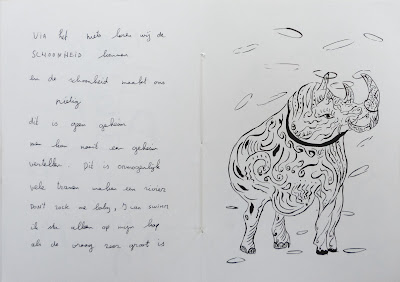 VIA het niets leren wij de
SCHOONHEID kennen
en de schoonheid maakt ons
nietig
dit is geen geheim
een kan nooit een geheim
vertellen. Dit is onmogelijk
vele tranen maken een rivier
DON'T rock me baby, I can SWIMM
ik sta alleen op mijn kop
als de vraag zeer groot is